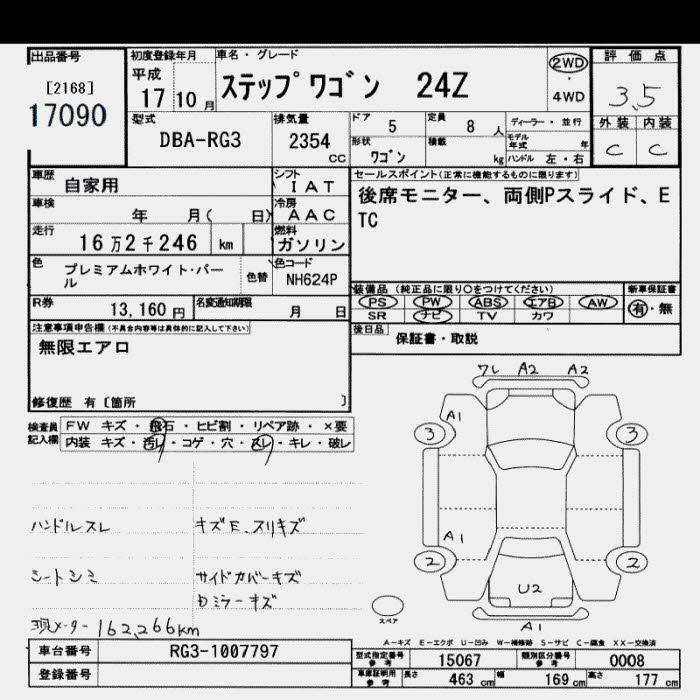 出品番号
[2168]
17090
初度登録年月
平成
17 10 月
車名・グレード
ステップワゴン 24Z
2WD
・
4WD
評価点
3.5
外装 内装
C C
型式
DBA-RG3
排気量
2354
CC
ドア 5
形状
ワゴン
定員 8 人
積載 kg
ディーラー・並行
モデル年式 年
ハンドル 左・右
車歴 自家用
シフト
IAT
車検 年 月( 日)
冷房
AAC
走行 16万2千246 km
燃料
ガソリン
色 プレミアムホワイト・パール
色替
色コード
NH624P
R券 13,160円
名変通知期限 月 日
セールスポイント(正常に機能するものに限ります)
後席モニター、両側Pスライド、E
TC
装備品 (純正品に限り○をつけてください)
PS PW ABS エアB AW
SR ナビ TV カワ
新車保証書
有・無
後日品
保証書・取説
注意事項申告欄(不具合内容等は具体的に記入して下さい)
無限エアロ
修復歴 有〔箇所 〕
検査員
記入欄
FW キズ・飛石・ヒビ割・リペア跡・×要
内装 キズ・汚レ・コゲ・穴・スレ・キレ・破レ
ハンドルスレ
キズE、スリキズ
シートシミ
サイドカバーキズ
Dミラーキズ
現メーター 162,266km
ワレ A2 A2
A1
3 3
A1
2 2
U2
A1
スペア
A-キズ E-エクボ U-凹み W-補修跡 S-サビ C-腐食 XX-交換済
車台番号 RG3-1007797
登録番号
型式指定番号
参考
15067
類別区分番号
参考
0008
車庫証明用
参考
長さ 463 cm
幅 169 cm
高さ 177 cm